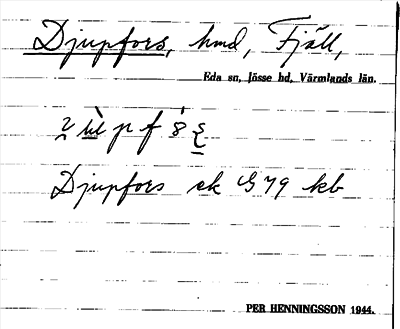 Djupfors, hmd, Fjäll,
Eda sn, Jösse hd, Värmlands län.
Djupfors ek G 79 kb
PER HENNINGSSON 1944.